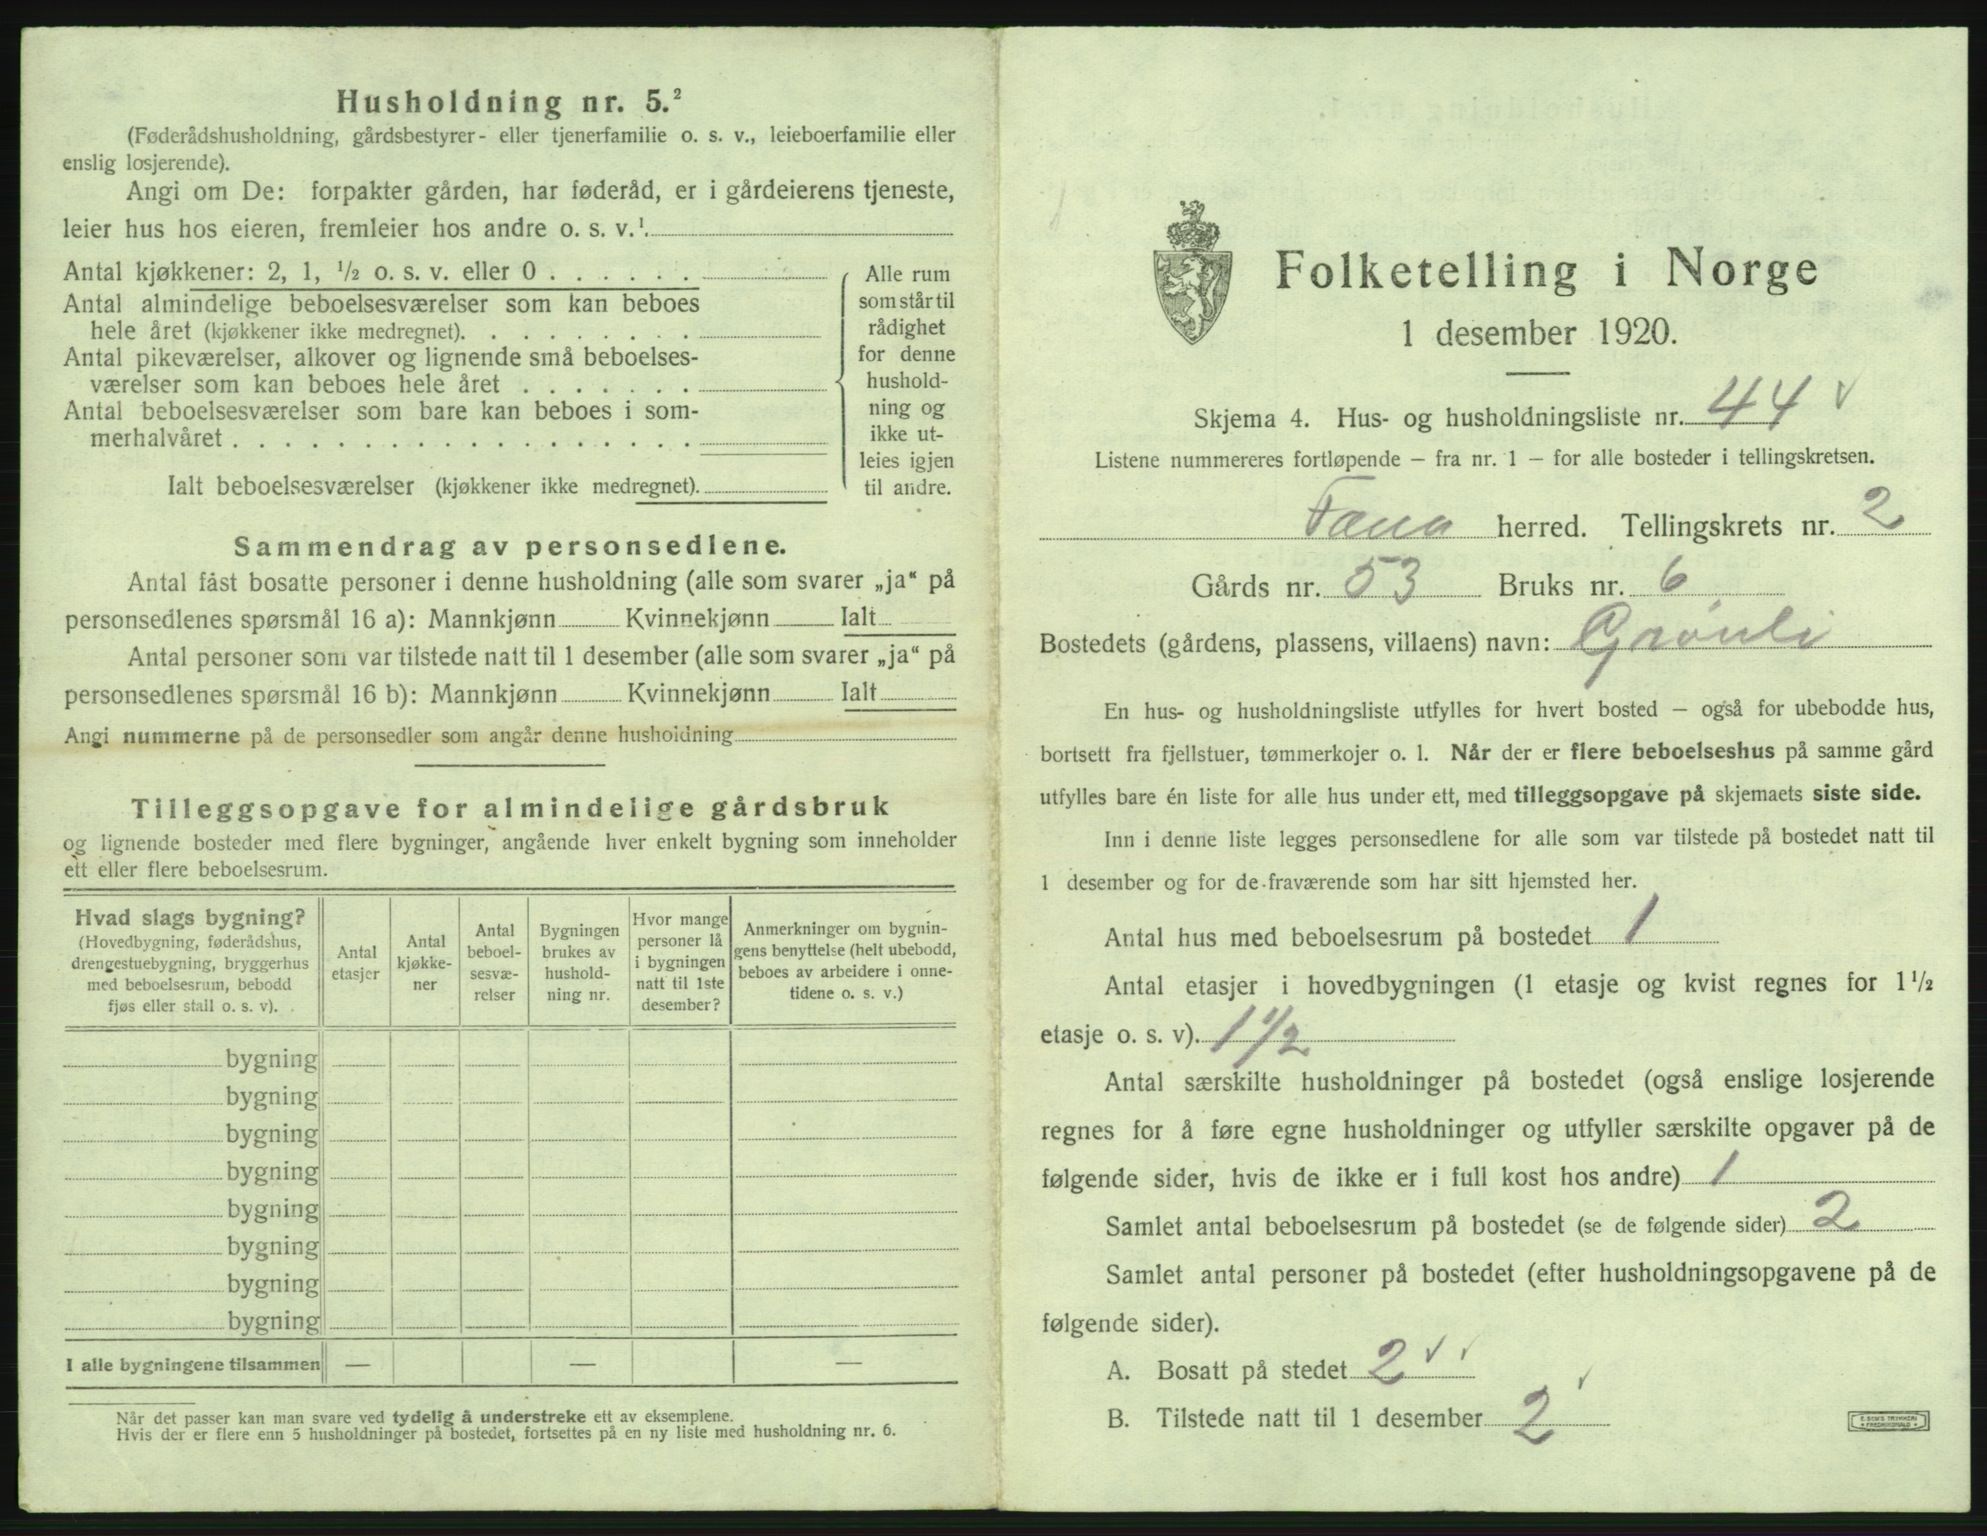 Husholdning nr. 5.²
(Føderådshusholdning, gårdsbestyrer- eller tjenerfamilie o. s. v., leieboerfamilie eller
enslig losjerende).
Angi om De: forpakter gården, har føderåd, er i gårdeierens tjeneste,
leier hus hos eieren, fremleier hos andre o. s. v.¹
Antal kjøkkener: 2, 1, ½ o. s. v. eller 0 . . . . . .
Antal almindelige beboelsesværelser som kan beboes
hele året (kjøkkener ikke medregnet). . . . . . . . .
Antal pikeværelser, alkover og lignende små beboelses-
værelser som kan beboes hele året . . . . . . .
Antal beboelsesværelser som bare kan beboes i som-
merhalvåret . . . . . . . . . . . . . . . . . .
Ialt beboelsesværelser (kjøkkener ikke medregnet).
Alle rum
som står til
rådighet
for denne
hushold-
ning og
ikke ut-
leies igjen
til andre.
Sammendrag av personsedlene.
Antal fast bosatte personer i denne husholdning (alle som svarer „ja“ på
personsedlenes spørsmål 16 a): Mannkjønn Kvinnekjønn Ialt
Antal personer som var tilstede natt til 1 desember (alle som svarer „ja“ på
personsedlenes spørsmål 16 b): Mannkjønn Kvinnekjønn Ialt
Angi nummerne på de personsedler som angår denne husholdning
Tilleggsopgave for almindelige gårdsbruk
og lignende bosteder med flere bygninger, angående hver enkelt bygning som inneholder
ett eller flere beboelsesrum.
Hvad slags bygning?
(Hovedbygning, føderådshus,
drengestuebygning, bryggerhus
med beboelsesrum, bebodd
fjøs eller stall o. s. v).
Antal
etasjer
Antal
kjøkke-
ner
Antal
beboel-
sesvæ-
relser
Bygningen
brukes av
hushold-
ning nr.
Hvor mange
personer lå
i bygningen
natt til 1ste
desember?
Anmerkninger om bygnin-
gens benyttelse (helt ubebodd,
beboes av arbeidere i onne-
tidene o. s. v.)
bygning
bygning
bygning
bygning
bygning
bygning
bygning
bygning
I alle bygningene tilsammen — — —
Når det passer kan man svare ved tydelig å understreke ett av eksemplene.
Hvis der er flere enn 5 husholdninger på bostedet, fortsettes på en ny liste med husholdning nr. 6.
Folketelling i Norge
1 desember 1920.
Skjema 4. Hus- og husholdningsliste nr. 44 ✓
Listene nummereres fortløpende – fra nr. 1 – for alle bosteder i tellingskretsen.
Fana herred. Tellingskrets nr. 2
Gårds nr. 53 Bruks nr. 6
Bostedets (gårdens, plassens, villaens) navn: Grönli
En hus- og husholdningsliste utfylles for hvert bosted – også for ubebodde hus,
bortsett fra fjellstuer, tømmerkojer o. l. Når der er flere beboelseshus på samme gård
utfylles bare én liste for alle hus under ett, med tilleggsopgave på skjemaets siste side.
Inn i denne liste legges personsedlene for alle som var tilstede på bostedet natt til
1 desember og for de fraværende som har sitt hjemsted her.
Antal hus med beboelsesrum på bostedet 1
Antal etasjer i hovedbygningen (1 etasje og kvist regnes for 1½
etasje o. s. v). 1½
Antal særskilte husholdninger på bostedet (også enslige losjerende
regnes for å føre egne husholdninger og utfyller særskilte opgaver på de
følgende sider, hvis de ikke er i full kost hos andre) 1
Samlet antal beboelsesrum på bostedet (se de følgende sider) 2
Samlet antal personer på bostedet (efter husholdningsopgavene på de
følgende sider).
A. Bosatt på stedet 2 ✓ ✓
B. Tilstede natt til 1 desember 2 ✓